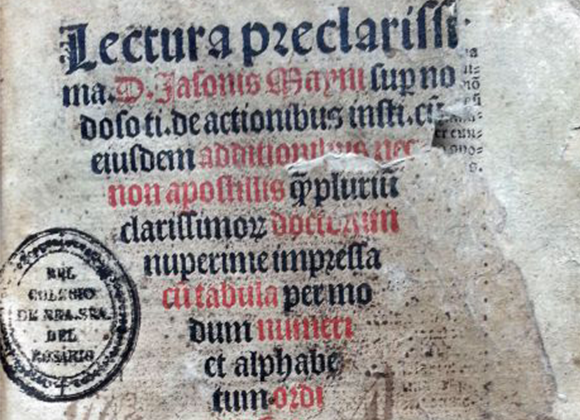 Lectura preclarissi-
ma. D. Jasonis Mayni suꝑ no
doso ti. de actionibus insti. cū
eiusdem additionibus nec
non apostillis ꝙ̄pluriū
clarissimoꝝ doctorum
nuperrime impressa
cū tabula per mo
dum numeri
et alphabe
tum ordi
DEL
COLEGIO
DE NRA. SRA.
DEL
ROSARIO